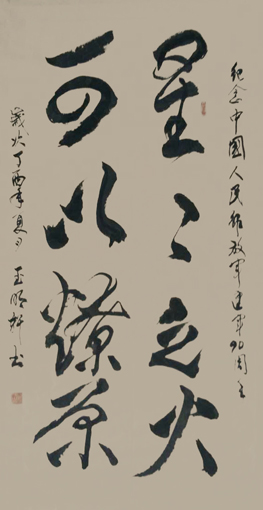 纪念中國人民解放军建军90周年
星〻之火
可以燎原
歲次丁酉年夏日 王明 书